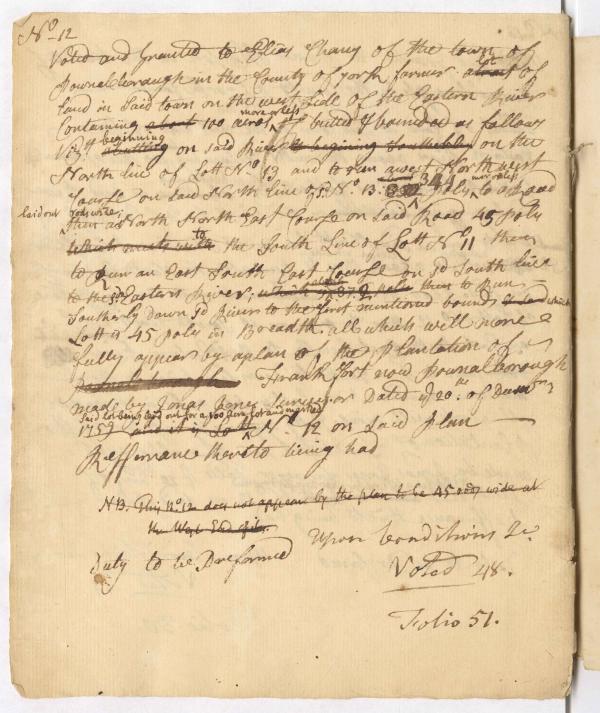 No. 12
Voted and Granted to Elias Cheny of the town of
Pownalborough in the County of york farmer a Lot of
Land in said town on the west side of the Eastern River
Containing about 100 acres more or less butted & bounded as follows
Viz beginning on said River on the
North line of Lott No. 13 and to run a west Northwest
Course on said North line of sd. No. 13: 344 poly more or less to a Road
laid out
then a North North East Course on said Road 45 poly
which meets with to the South Line of Lott No 11 then
to Run an East South East Course on sd South line
to the sd Eastern River, which is about 372 poly then to Run
Southerly Down sd River to the first mentioned bounds which
Lott is 45 poly in Breadth. all which will more
fully appear by a plan of the Plantation of
Frankfort now Pownalborough
made by Jonas Jones surveyor Dated ye 20th of Decemr
said Lot being laid out for a 100 acre Lot and marked
1759 and it is Lott No. 12 on said Plan
Refferance thereto being had
NB. This No. 12 does not appear by the plan to be 45 poly wide at
the West End of it.
Upon Conditions &c
Duty to be Preformed
Voted 48.
Folio 51.